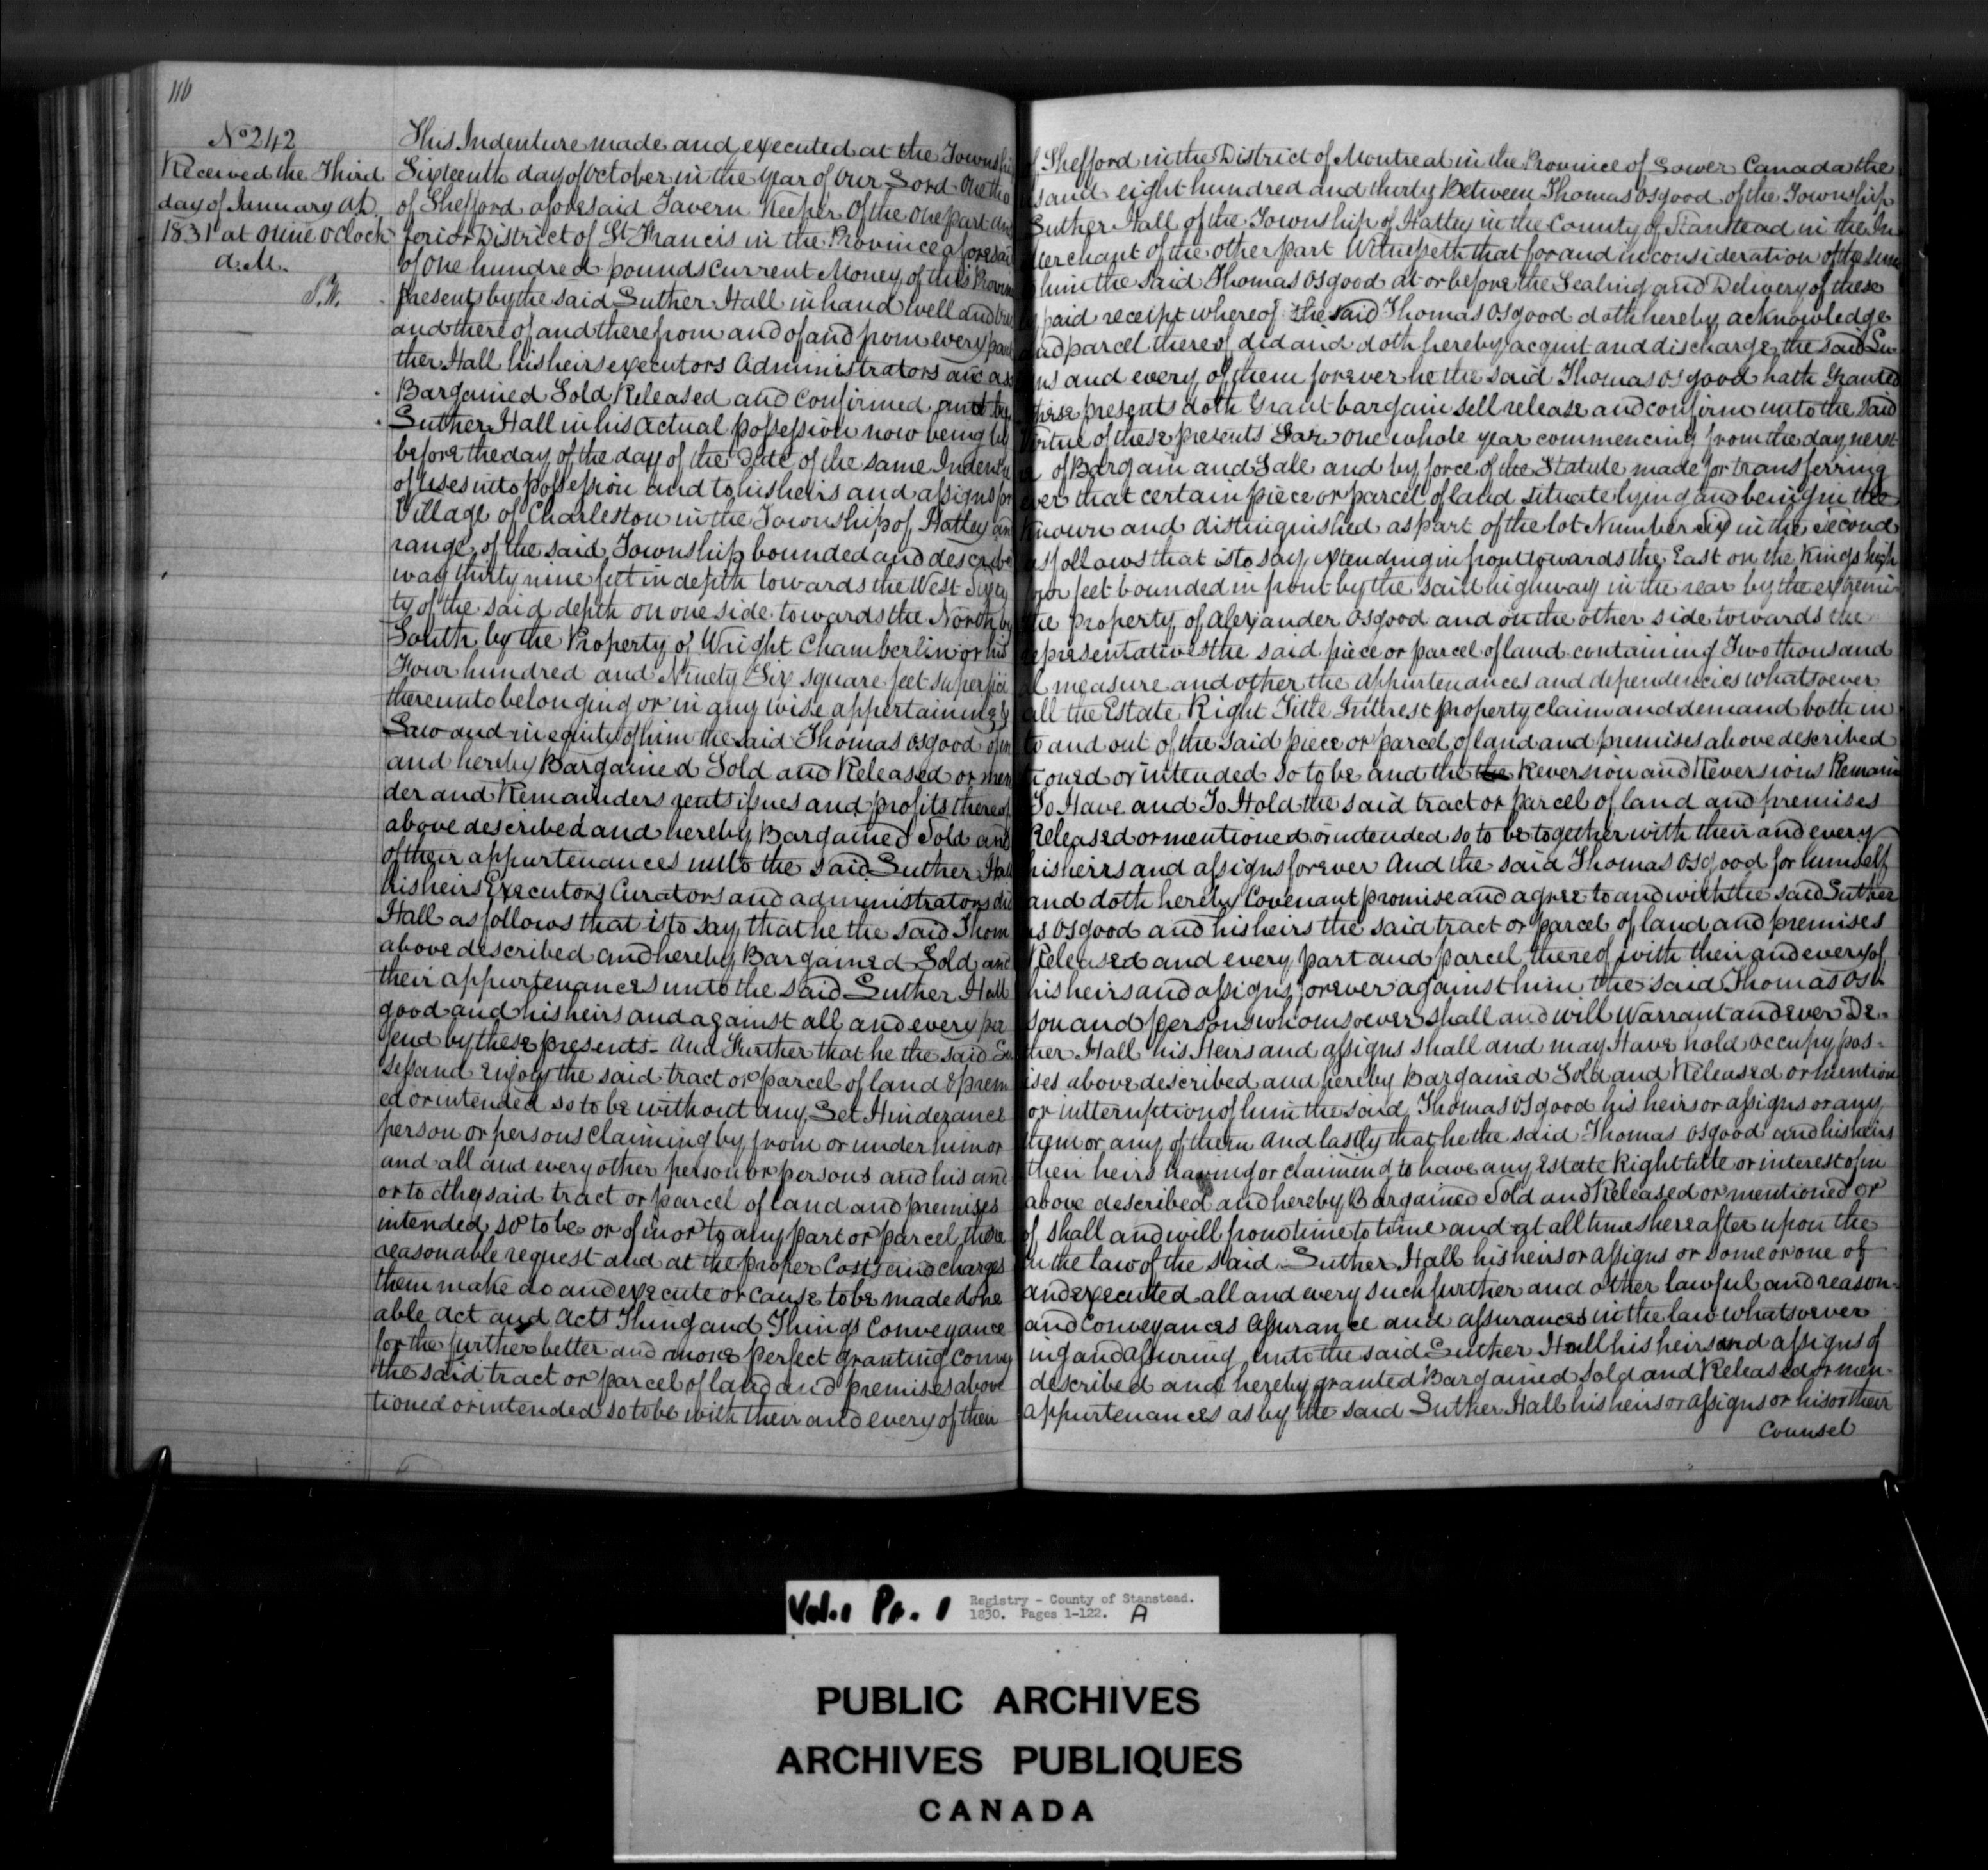 116
No 242
Received the Third
day of January At
1831 at nine o'Clock
A.M.
This Indenture made and executed at the Township of Shefford in the District of Montreal in the Province of Lower Canada the
Sixteenth day of October in the year of Our Lord One thousand eight hundred and thirty Between Thomas Osgood of the Township
of Shefford aforesaid Tavern Keeper Of the One part and Luther Hall of the Township of Hatley in the County of Stanstead in the In-
ferior District of St Francis in the Province aforesaid Merchant of the other part Witnesseth that for and in consideration of the sum
of One hundred pounds Current Money of this Province him the said Thomas Osgood at or before the Sealing and Delivery of these
presents by the said Luther Hall in hand well and truly paid receipt whereof the said Thomas Osgood doth hereby acknowledge
and thereof and therefrom and of and from every part and parcel thereof did and doth hereby acquit and discharge the said Lu-
ther Hall his heirs executors Administrators and assigns and every of them forever he the said Thomas Osgood hath Granted
Bargained Sold Released and Confirmed and by these presents doth Grant bargain sell release and confirm unto the said
Luther Hall in his actual possession now being by virtue of these presents for one whole year commencing from the day next
before the day of the day of the Date of the same Indenture of Bargain and Sale and by force of the Statute made for transferring
of Uses into possession and to his heirs and assigns forever that certain piece or parcel of land situate lying and being in the
Village of Charleston in the Township of Hatley and Known and distinguished as part of the lot Number Six in the second
range of the said Township bounded and described as follows that is to say, extending in front towards the East on the Kings high
way thirty nine feet in depth towards the West Sixty four feet bounded in front by the said highway in the rear by the extremi-
ty of the said depth on one side towards the North by the property of Alexander Osgood and on the other side towards the
South by the Property of Wright Chamberlin or his representatives the said piece or parcel of land containing Two thousand
Four hundred and Ninety Six square feet superficial measure and other the appurtenances and dependencies whatsoever
thereunto belonging or in any wise appertaining & all the Estate Right Title Interest property claim and demand both in
Law and in equity of him the said Thomas Osgood of in to and out of the said piece or parcel of land and premises above described
and hereby Bargained Sold and Released or mentioned or intended so to be and the the Reversion and Reversions Remain
der and Remainders rents issues and profits thereof To Have and To Hold the said tract or parcel of land and premises
above described and hereby Bargained Sold and Released or mentioned or intended so to be together with their and every
of their appurtenances unto the said Luther Hall his heirs and assigns forever And the said Thomas Osgood for himself
his heirs Executors Curators and administrators did and doth hereby Covenant promise and agree to and with the said Luther
Hall as follows that is to say, that he the said Thomas Osgood and his heirs the said tract or parcel of land and premises
above described and hereby Bargained Sold and Released and every part and parcel thereof with their and every of
their appurtenances unto the said Luther Hall his heirs and assigns forever against him the said Thomas Os-
good and his heirs and against all and every person and persons whomsoever shall and will Warrant and ever De-
fend by these presents - And Further that he the said Luther Hall his Heirs and assigns shall and may Have hold occupy pos-
sess and enjoy the said tract or parcel of land & premises above described and hereby Bargained Sold and Released or mention
ed or intended so to be without any Let Hinderance or interruption of him the said Thomas Osgood his heirs or assigns or any
person or persons claiming by from or under him or them or any of them And lastly that he the said Thomas Osgood and his heirs
and all and every other person or persons and his and their heirs having or claiming to have any Estate Right title or interest of in
or to the said tract or parcel of land and premises above described and hereby Bargained Sold and Released or mentioned or
intended so to be or of in or to any part or parcel thereof shall and will from time to time and at all times hereafter upon the
reasonable request and at the proper Costs and charges in the law of the said Luther Hall his heirs or assigns or some or one of
them make do and execute or cause to be made done and executed all and every such further and other lawful and reason-
able Act and Acts Thing and Things Conveyance and Conveyances Assurance and assurances in the law whatsoever
for the further better and more perfect granting convey ing and assuring unto the said Luther Hall his heirs and assigns of
the said tract or parcel of land and premises above described and hereby granted Bargained Sold and Released or men-
tioned or intended so to be with their and every of their appurtenances as by the said Luther Hall his heirs or assigns or his or their
Counsel
Vol. 1 Pr. 1
Registry - County of Stanstead.
1830. Pages 1-122. A
PUBLIC ARCHIVES
ARCHIVES PUBLIQUES
CANADA